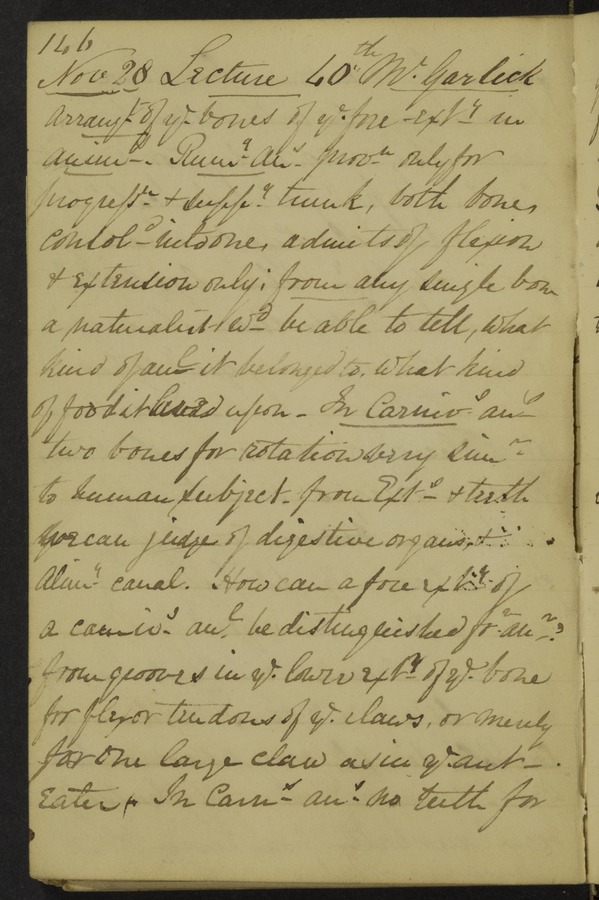 146
Nov 28 Lecture 40th Mr. Garlick
Arrangt. of ye. bones of ye. fore-exty. in
animls. Rumg. ans. provn. only for
progressn. & suppg. trunk, both bones
consold. into one, admits of flexion
& extension only; from any single bone
a naturalist wd. be able to tell, what
kind of aml. it belonged to. What kind
of food it lived upon - In Carnivs. anl.
two bones for rotation very simr.
to human subject. from Exts. & teeth
we can judge of digestive organs. &
Alimy. canal. How can a fore exty. of
a carnivs. anl. be distinguished fr. anr.?
from grooves in ye. lower exty. of ye. bone
for flexor tendons of ye. claws, or merely
for one large claw as in ye. ant-
Eater. In Carns. ans. no teeth for